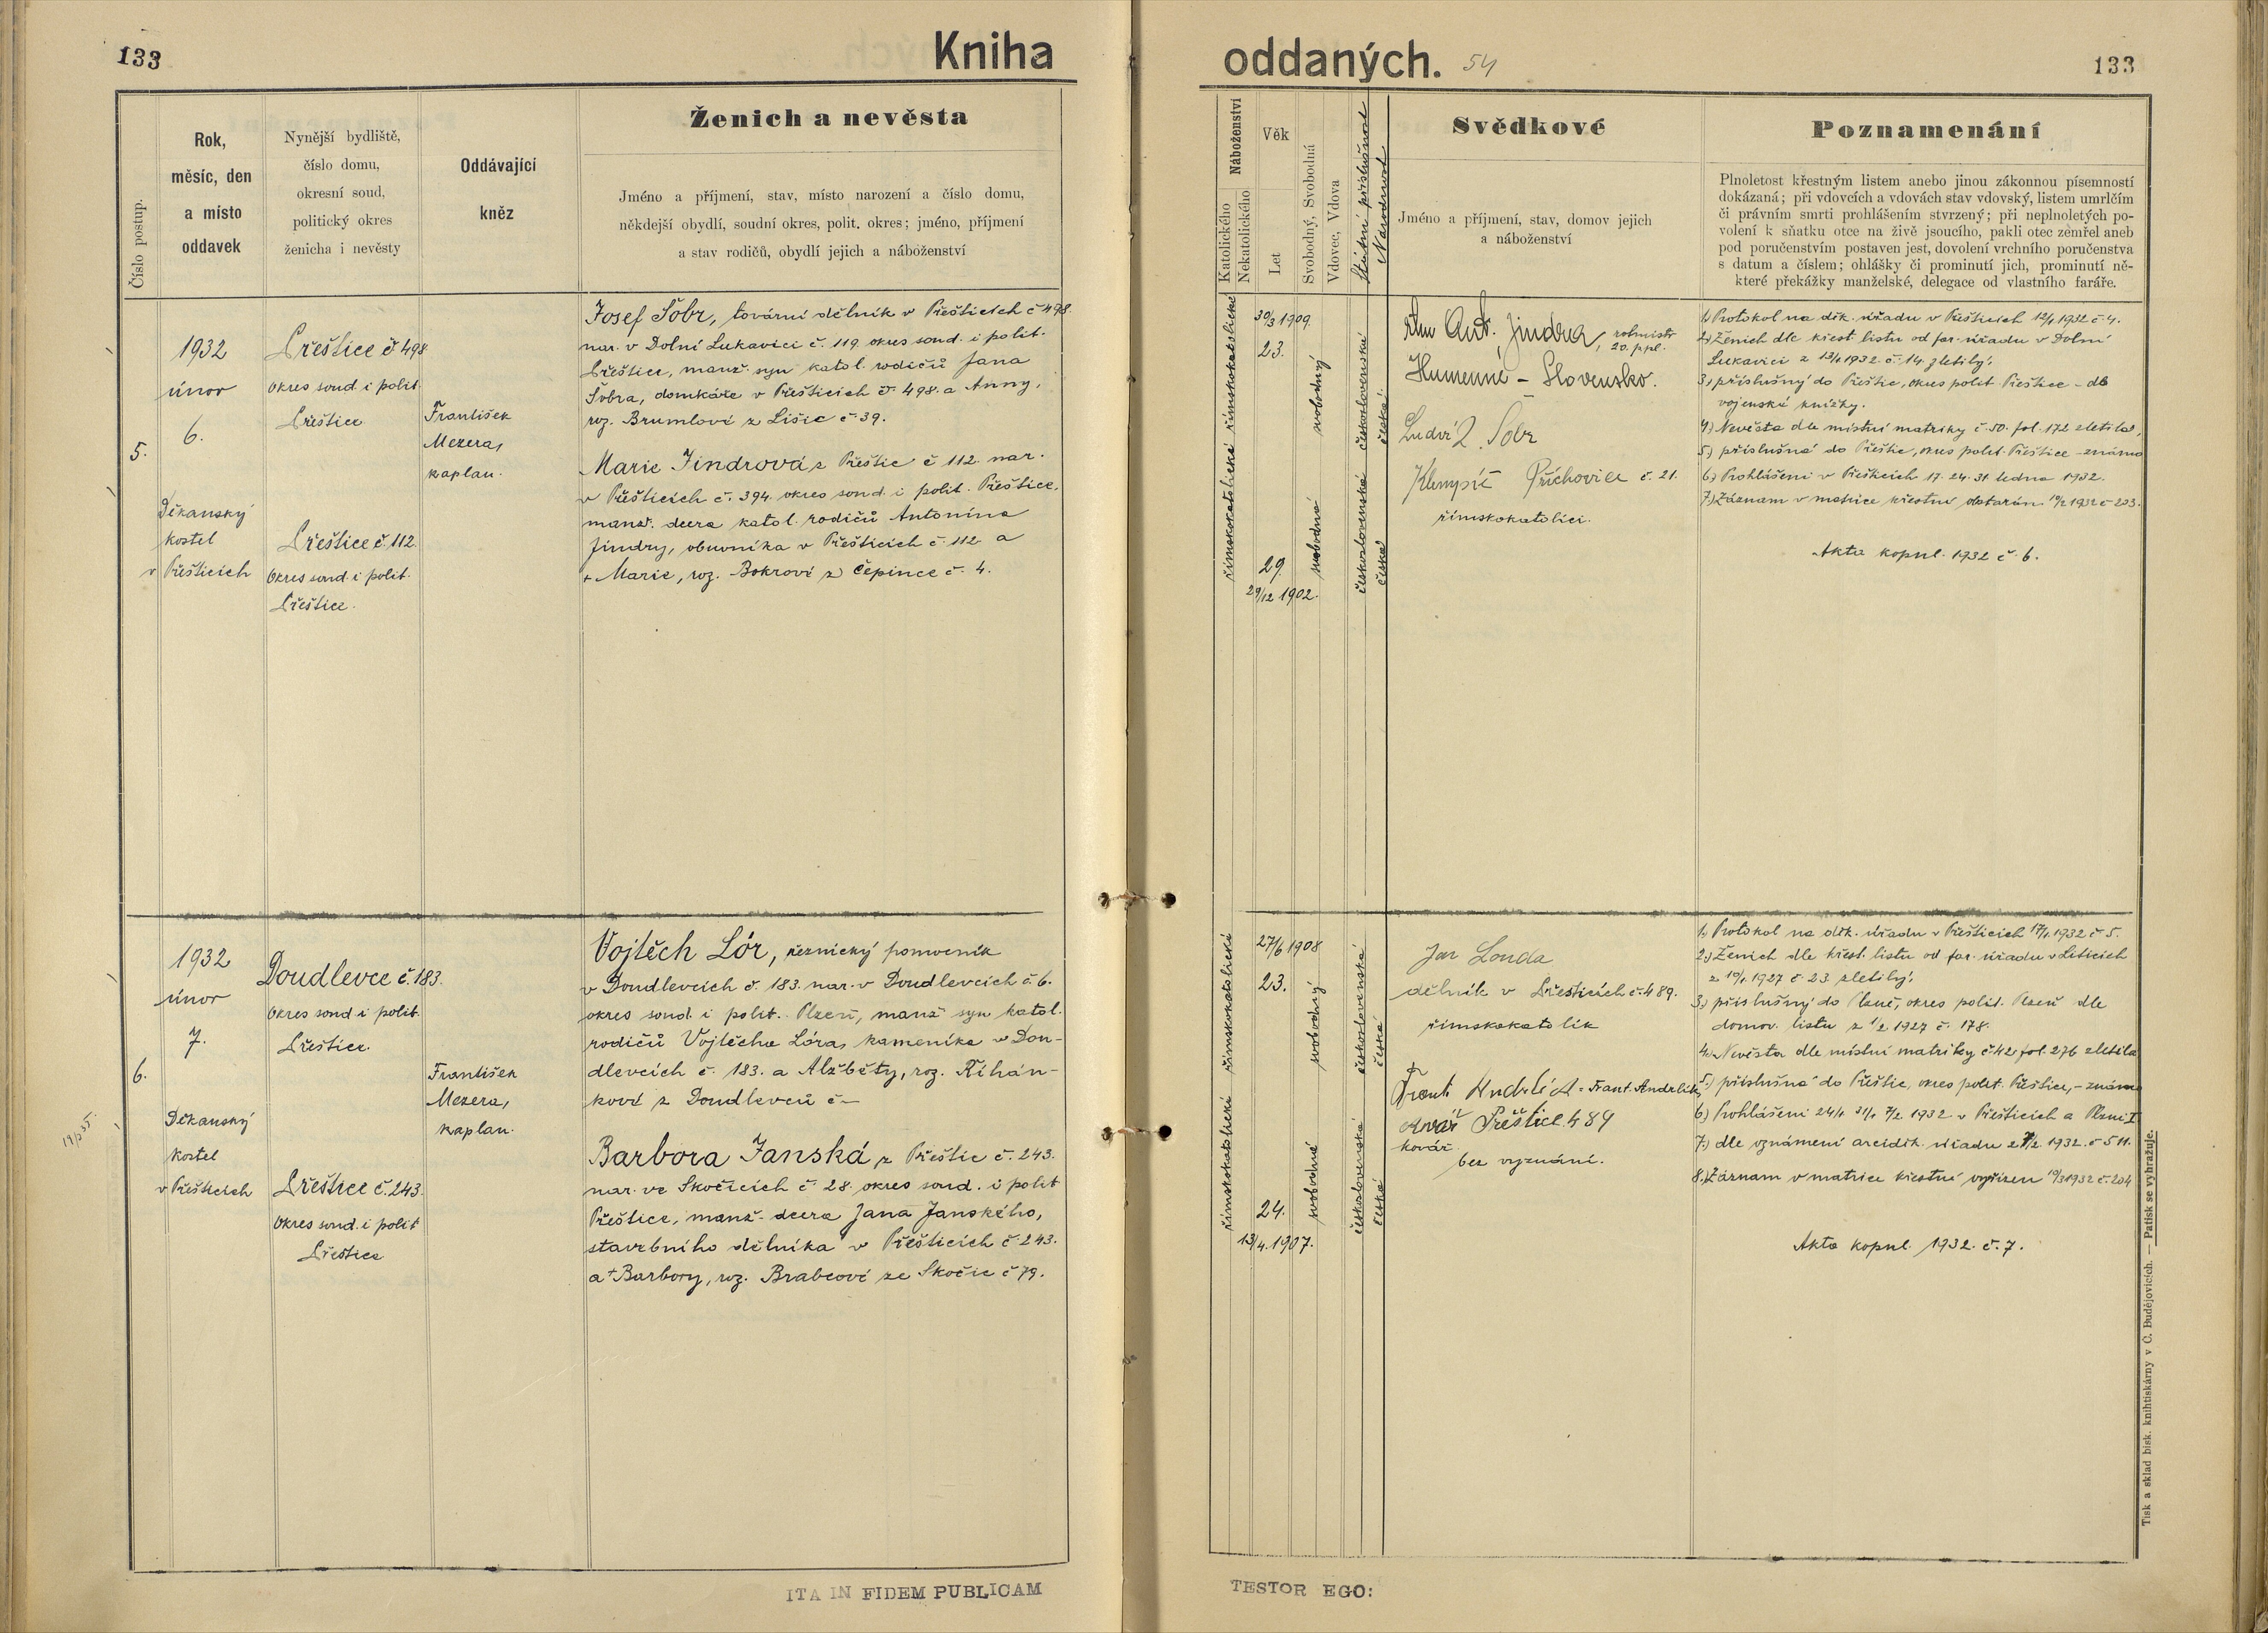 133
Kniha
Číslo postup.
Rok,
měsíc, den
a místo
oddavek
Nynější bydliště,
číslo domu,
okresní soud,
politický okres
ženicha i nevěsty
Oddávající
kněz
Ženich a nevěsta
Jméno a příjmení, stav, místo narození a číslo domu,
někdejší obydlí, soudní okres, polit. okres; jméno, příjmení
a stav rodičů, obydlí jejich a náboženství
5.
1932
únor
6.
Děkanský
kostel
v Přešticích
Přeštice č 498
okres soud. i polit.
Přeštice
Přeštice č. 112.
Okres soud. i polit.
Přeštice.
František
Mezera,
kaplan.
Josef Šobr, tovární dělník v Přešticích č 498.
nar. v Dolní Lukavici č. 119. okres soud. i polit.
Přeštice, manž. syn katol. rodičů Jana
Šobra, domkáře v Přešticích č. 498. a Anny,
roz. Brumlové z Lišic č. 39.
Marie Jindrová z Přeštic č 112. nar.
v Přešticích č. 394. okres soud. i polit. Přeštice,
manž. dcera katol. rodičů Antonína
Jindry, obuvníka v Přešticích č. 112 a
+ Marie, roz. Bokrové z Čepince č. 4.
6.
1932
únor
7.
Děkanský
kostel
v Přešticích
Doudlevce č. 183.
Okres soud i polit.
Přeštice.
Přeštice č. 243.
Okres soud. i polit
Přeštice
František
Mezera,
kaplan.
Vojtěch Lór, řeznický pomocník
v Doudlevcích č. 183. nar. v Doudlevcích č. 6.
okres soud. i polit. Plzeň, manž syn katol.
rodičů Vojtěcha Lóra, kameníka v Dou-
dlevcích č. 183. a Alžběty, roz. Říhán-
kové z Doudlevců č –
Barbora Janská z Přeštic č. 243.
nar. ve Skočicích č. 28. okres soud. i polit
Přeštice, manž. dcera Jana Janského,
stavebního dělníka v Přešticích č. 243.
a + Barbory, roz. Brabcové ze Skočic č 79.
ITA IN FIDEM PUBLICAM
oddaných. 54
133
Náboženství
Katolického
Nekatolického
Věk
Let
Svobodný, Svobodná
Vdovec, Vdova
Státní příslušnost
Národnost
Svědkové
Jméno a příjmení, stav, domov jejich
a náboženství
Poznamenání
Plnoletost křestným listem anebo jinou zákonnou písemností
dokázaná; při vdovcích a vdovách stav vdovský, listem úmrlčím
či právním smrti prohlášením stvrzený; při neplnoletých po-
volení k sňatku otce na živě jsoucího, pakli otec zemřel aneb
pod poručenstvím postaven jest, dovolení vrchního poručenstva
s datum a číslem; ohlášky či prominutí jich, prominutí ně-
které překážky manželské, delegace od vlastního faráře.
římskokatolické
římskokatolické
30/3 1909.
23.
29.
29/12 1902.
svobodný
svobodná
československá
česká
československá
česká
Ant. Jindra, rotmistr
20. p.pl.
Humenné – Slovensko.
Ludvík Šobr
Příchovice č. 21.
římskokatolíci.
1.) Protokol na děk. úřadu v Přešticích 12/1 1932 č. 4.
2.) Ženich dle křest. listu od far. úřadu v Dolní
Lukavici z 13/1 1932. č. 14. zletilý,
3.) příslušný do Přeštic, okres polit. Přeštice – dle
vojenské knížky.
4.) Nevěsta dle místní matriky č. 50. fol. 172 zletilá,
5.) příslušná do Přeštic, okres polit. Přeštice – známo
6.) Prohlášení v Přešticích 17. 24. 31. ledna 1932.
7.) Záznam v matrice křestní obstarán 10/2 1932 č 203.
Akta kopul. 1932 č. 6.
římskokatolické
římskokatolické
27/6 1908
23.
24.
13/4. 1907.
svobodný
svobodná
československá
česká
československá
česká
Jan Londa
dělník v Přešticích č. 489.
římskokatolík
Frant. Andrlík = Frant. Andrlík,
kovář Přeštice 489
kovář
bez vyznání.
1.) Protokol na děk. úřadu v Přešticích 17/1. 1932 č 5.
2.) Ženich dle křest. listu od far. úřadu v Liticích
z 10/1. 1927 č. 23 zletilý,
3.) příslušný do Plzně, okres polit. Plzeň dle
domov. listu z 1/2 1927 č. 178.
4.) Nevěsta dle místní matriky č. 42 fol. 276 zletilá
5.) příslušná do Přeštic, okres polit. Přeštice, – známo
6.) Prohlášení 24/1. 31/1. 7/2. 1932 v Přešticích a Plzni I
7.) dle oznámení arciděk. úřadu z 7/2. 1932. č 511.
8.) Záznam v matrice křestní vyřízen 10/3 1932 č. 204
Akta kopul. 1932. č. 7.
Tisk a sklad bisk. knihtiskárny v Č. Budějovicích. — Patisk se vyhražuje.
TESTOR EGO: